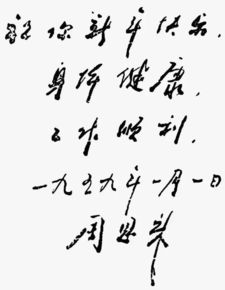 祝你新年快乐.
身体健康.
工作顺利.
一九五九年一月一日
周恩来